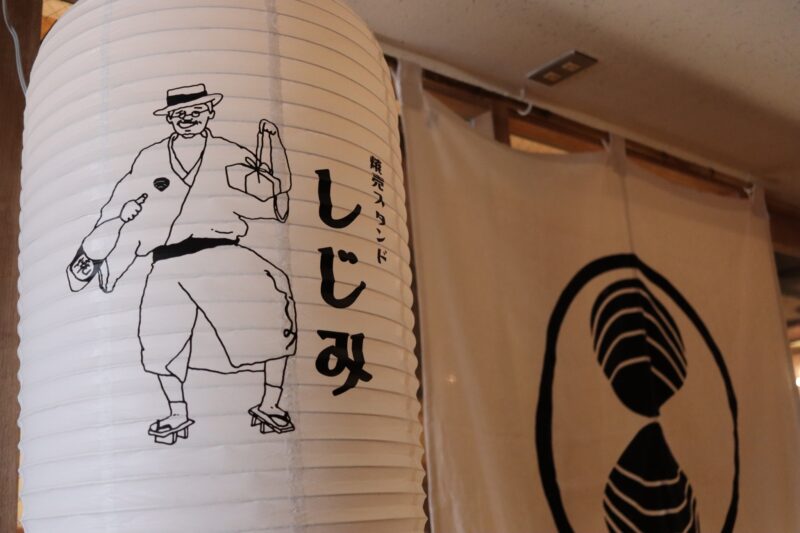 焼売スタンド
しじみ